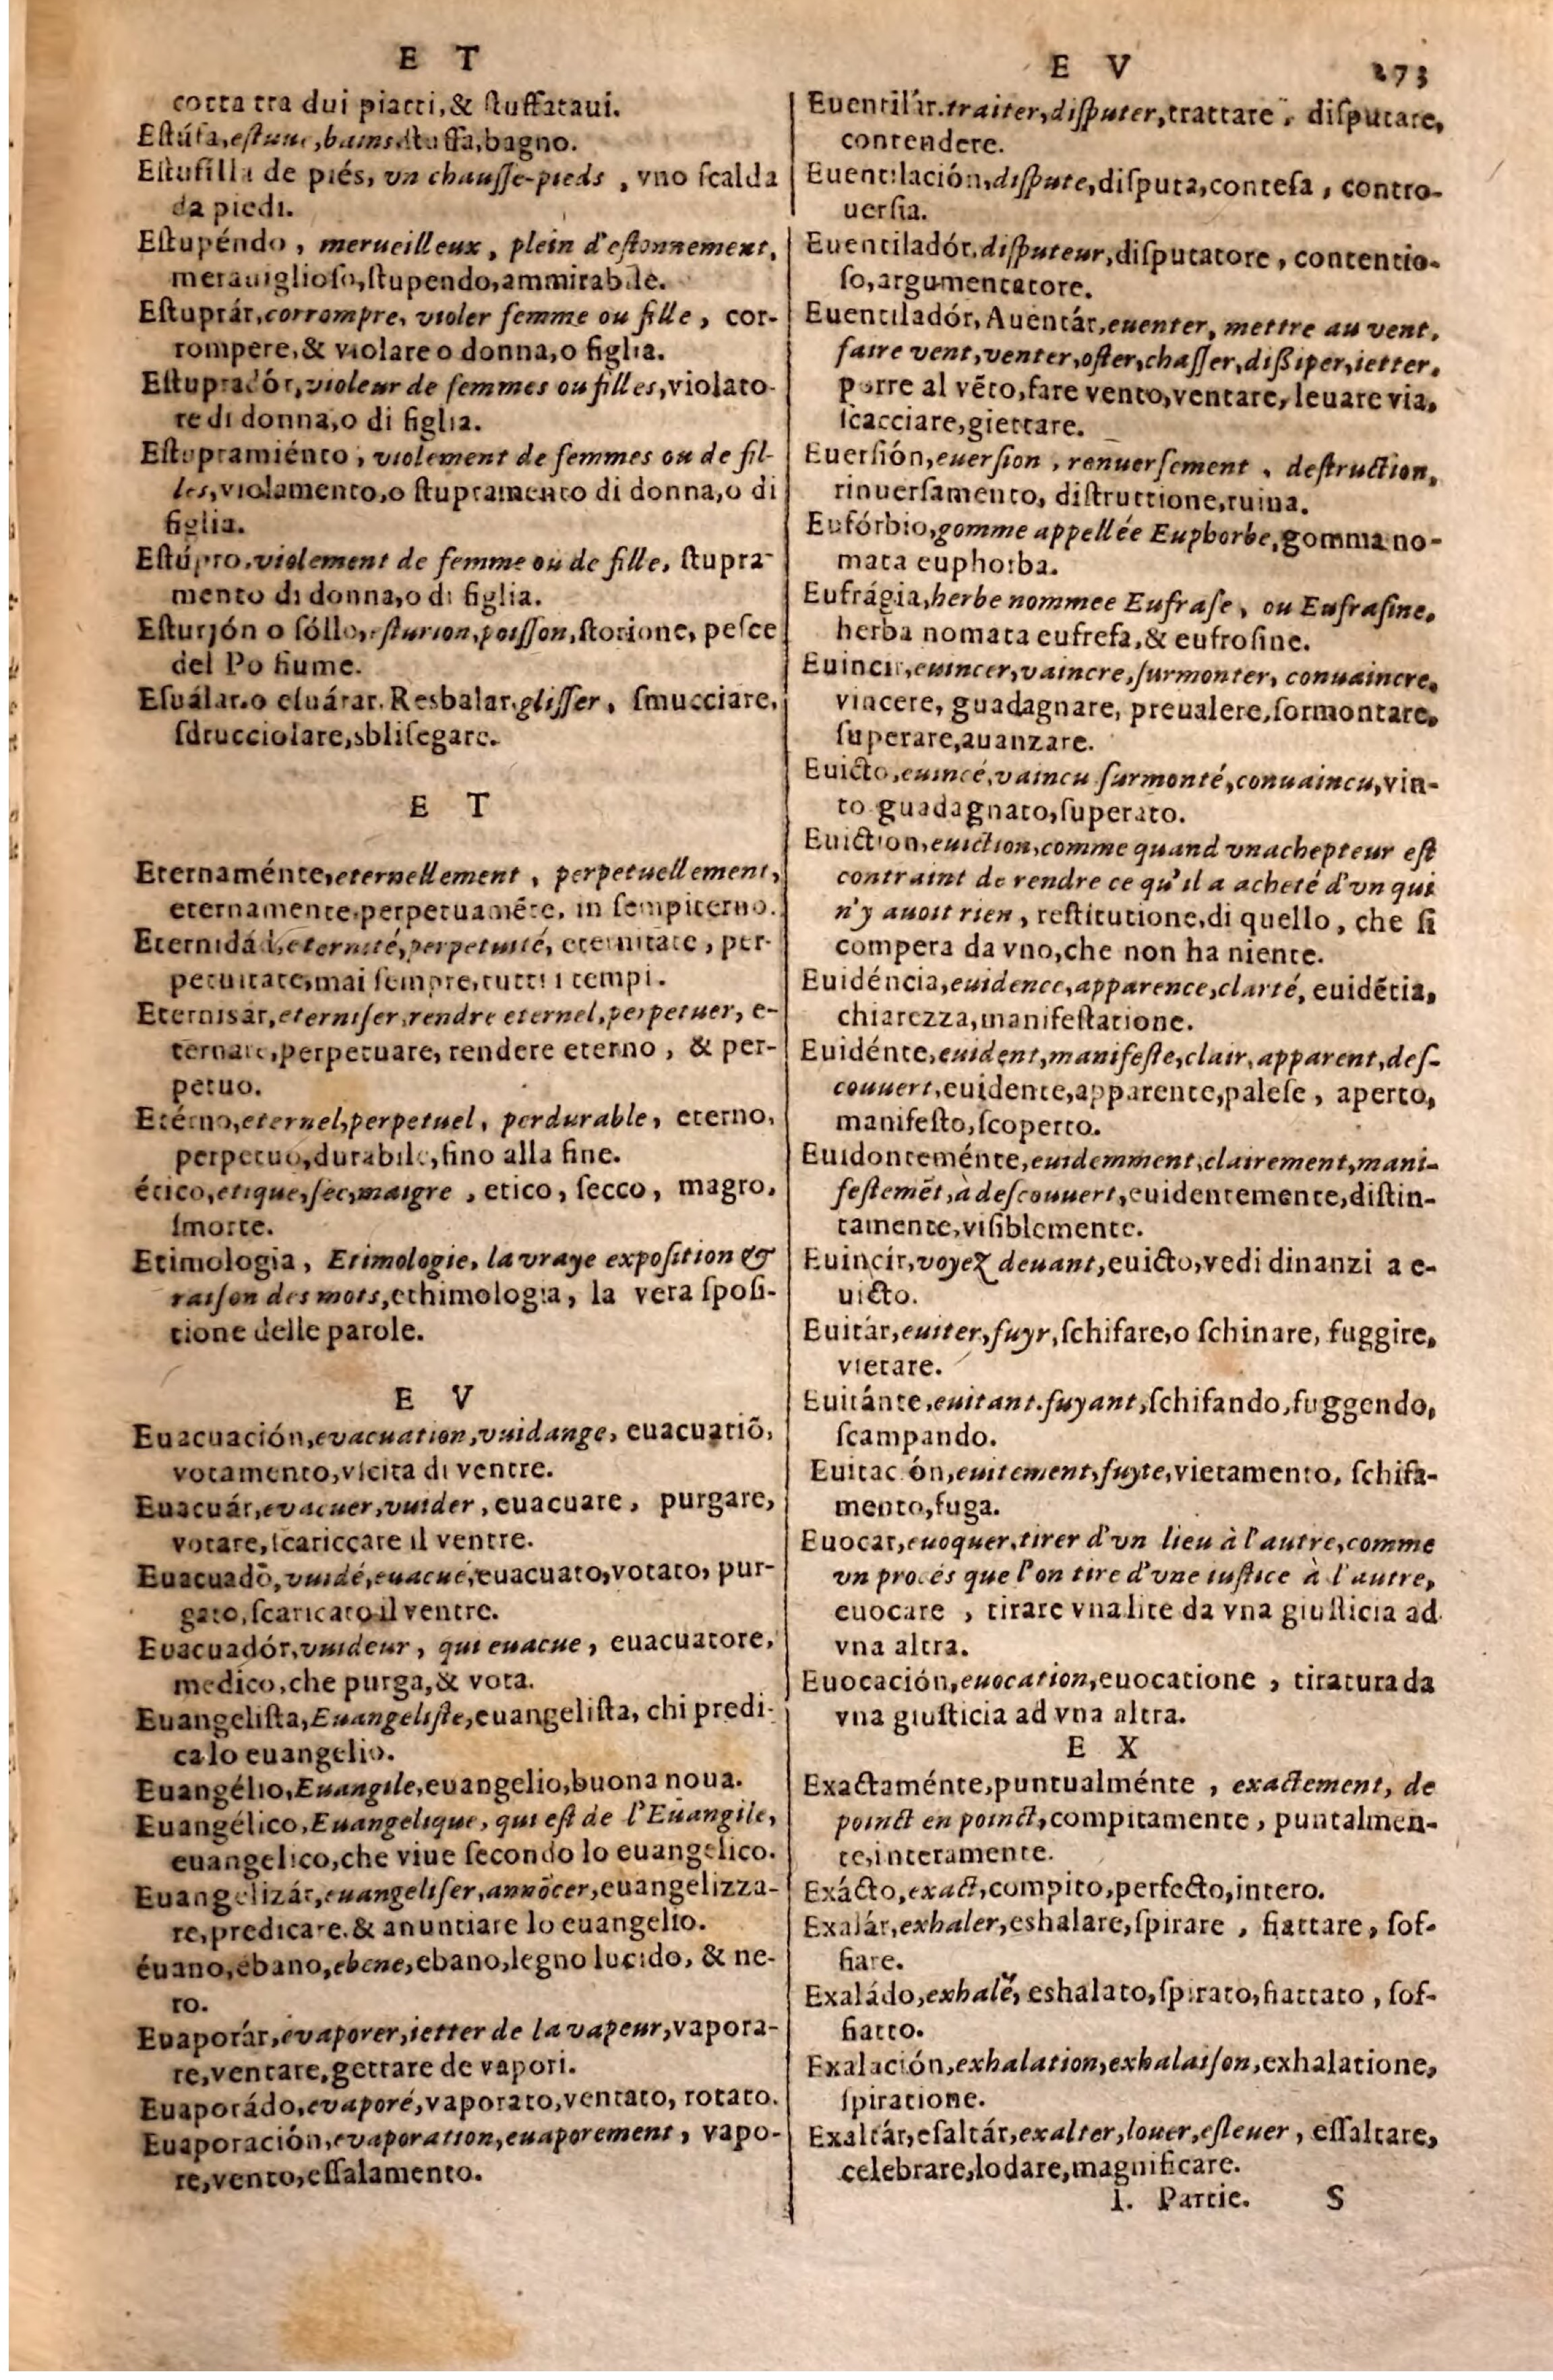 E T
cotta tra dui piatti,& ſtuffataui.
Eſtúfa,eſtuue,bains.ſtuffa,bagno.
Eſtufilla de piés, vn chauſſe-pieds , vno ſcalda
da piedi.
Eſtupéndo , merueilleux , plein d'eſtonnement,
merauiglioſo,ſtupendo,ammirabile.
Eſtuprár,corrompre, violer femme ou fille , cor-
rompere,& violare o donna,o figlia.
Eſtupradór,violeur de femmes ou filles,violato-
re di donna,o di figlia.
Eſtupramiénto , violement de femmes ou de fil-
les,violamento,o ſtupramento di donna,o di
figlia.
Eſtúpro,violement de femme ou de fille, ſtupra-
mento di donna,o di figlia.
Eſturjón o ſóllo,eſturion,poiſſon,ſtorione, peſce
del Po fiume.
Eſuálar.o eſuárar. Resbalar.gliſſer , ſmucciare,
ſdrucciolare,sbliſegare.
E T
Eternaménte,eternellement , perpetuellement,
eternamente,perpetuamẽte, in ſempiterno.
Eternidád,eternité,perpetuité, eternitate , per-
petuitate,mai ſempre,tutti i tempi.
Eternisár,eterniſer,rendre eternel,perpetuer, e-
ternare,perpetuare, rendere eterno , & per-
petuo.
Etérno,eternel,perpetuel, perdurable, eterno,
perpetuo,durabile,fino alla fine.
ético,etique,ſec,maigre , etico, ſecco, magro,
ſmorte.
Etimologia , Etimologie, la vraye expoſition &
raiſon des mots,ethimologia, la vera ſpoſi-
tione delle parole.
E V
Euacuación,evacuation,vuidange, euacuatiõ,
votamento,vſcita di ventre.
Euacuár,evacuer,vuider , euacuare, purgare,
votare,ſcariccare il ventre.
Euacuadõ,vuidé,euacué,euacuato,votato, pur-
gato,ſcaricato il ventre.
Euacuadór,vuideur, qui euacue, euacuatore,
medico,che purga,& vota.
Euangeliſta,Euangeliſte,euangeliſta, chi predi-
ca lo euangelio.
Euangélio,Euangile,euangelio,buona noua.
Euangélico,Euangelique, qui eſt de l'Euangile,
euangelico,che viue ſecondo lo euangelico.
Euangelizár,euangeliſer,annõcer,euangelizza-
re,predicare.& anuntiare lo euangelio.
éuano,ébano,ebene,ebano,legno lucido, & ne-
ro.
Euaporár,évaporer,ietter de la vapeur,vapora-
re,ventare,gettare de vapori.
Euaporádo,evaporé,vaporato,ventato, rotato.
Euaporación,evaporation,euaporement, vapo-
re,vento,eſſalamento.
E V 273
Euentilár.traiter,diſputer,trattare, diſputare,
contendere.
Euentilación,diſpute,diſputa,conteſa , contro-
uerſia.
Euentiladór.diſputeur,diſputatore , contentio-
ſo,argumentatore.
Euentiladór, Auentár,euenter, mettre au vent,
faire vent,venter,oſter,chaſſer,diſſiper,ietter.
porre al vẽto,fare vento,ventare, leuare via,
ſcacciare,giettare.
Euerſión,euerſion , renuerſement , deſtruction,
rinuerſamento, diſtruttione,ruina.
Eufórbio,gomme appellée Euphorbe,gomma no-
mata euphorba.
Eufrágia,herbe nommee Eufraſe, ou Eufraſine,
herba nomata eufreſa,& eufroſine.
Euincir,euincer,vaincre,ſurmonter, conuaincre,
vincere, guadagnare, preualere,ſormontare,
ſuperare,auanzare.
Euicto,euincé,vaincu ſurmonté,conuaincu,vin-
to guadagnato,ſuperato.
Euiction,euiction,comme quand vn achepteur eſt
contraint de rendre ce qu'il a acheté d'vn qui
n'y auoit rien , reſtitutione,di quello, che ſi
compera da vno,che non ha niente.
Euidéncia,euidence,apparence,clarté, euidẽtia,
chiarezza,manifeſtatione.
Euidénte,euident,manifeſte,clair,apparent,deſ-
couuert,euidente,apparente,paleſe , aperto,
manifeſto,ſcoperto.
Euidonteménte,euidemment,clairement,mani-
feſtemẽt,à deſcouuert,euidentemente,diſtin-
tamente,viſiblemente.
Euincir,voyez deuant,euicto,vedi dinanzi a e-
uicto.
Euitár,euiter,fuyr,ſchifare,o ſchinare, fuggire,
vietare.
Euitánte,euitant.fuyant,ſchifando,fuggendo,
ſcampando.
Euitación,euitement,fuyte,vietamento, ſchifa-
mento,fuga.
Euocar,euoquer,tirer d'vn lieu à l'autre,comme
vn procés que l'on tire d'vne iuſtice à l'autre,
euocare , tirare vna lite da vna giuſticia ad
vna altra.
Euocación,euocation,euocatione , tiratura da
vna giuſticia ad vna altra.
E X
Exactaménte,puntualménte , exactement, de
poinct en poinct,compitamente , puntalmen-
te,interamente.
Exácto,exact,compito,perfecto,intero.
Exalár,exhaler,eshalare,ſpirare , fiattare, ſof-
fiare.
Exaládo,exhalé, eshalato,ſpirato,fiattato , ſof-
fiatto.
Exalación,exhalation,exhalaiſon,exhalatione,
ſpiratione.
Exaltár,eſaltár,exalter,louer,eſleuer , eſſaltare,
celebrare,lodare,magnificare.
I. Partie. S